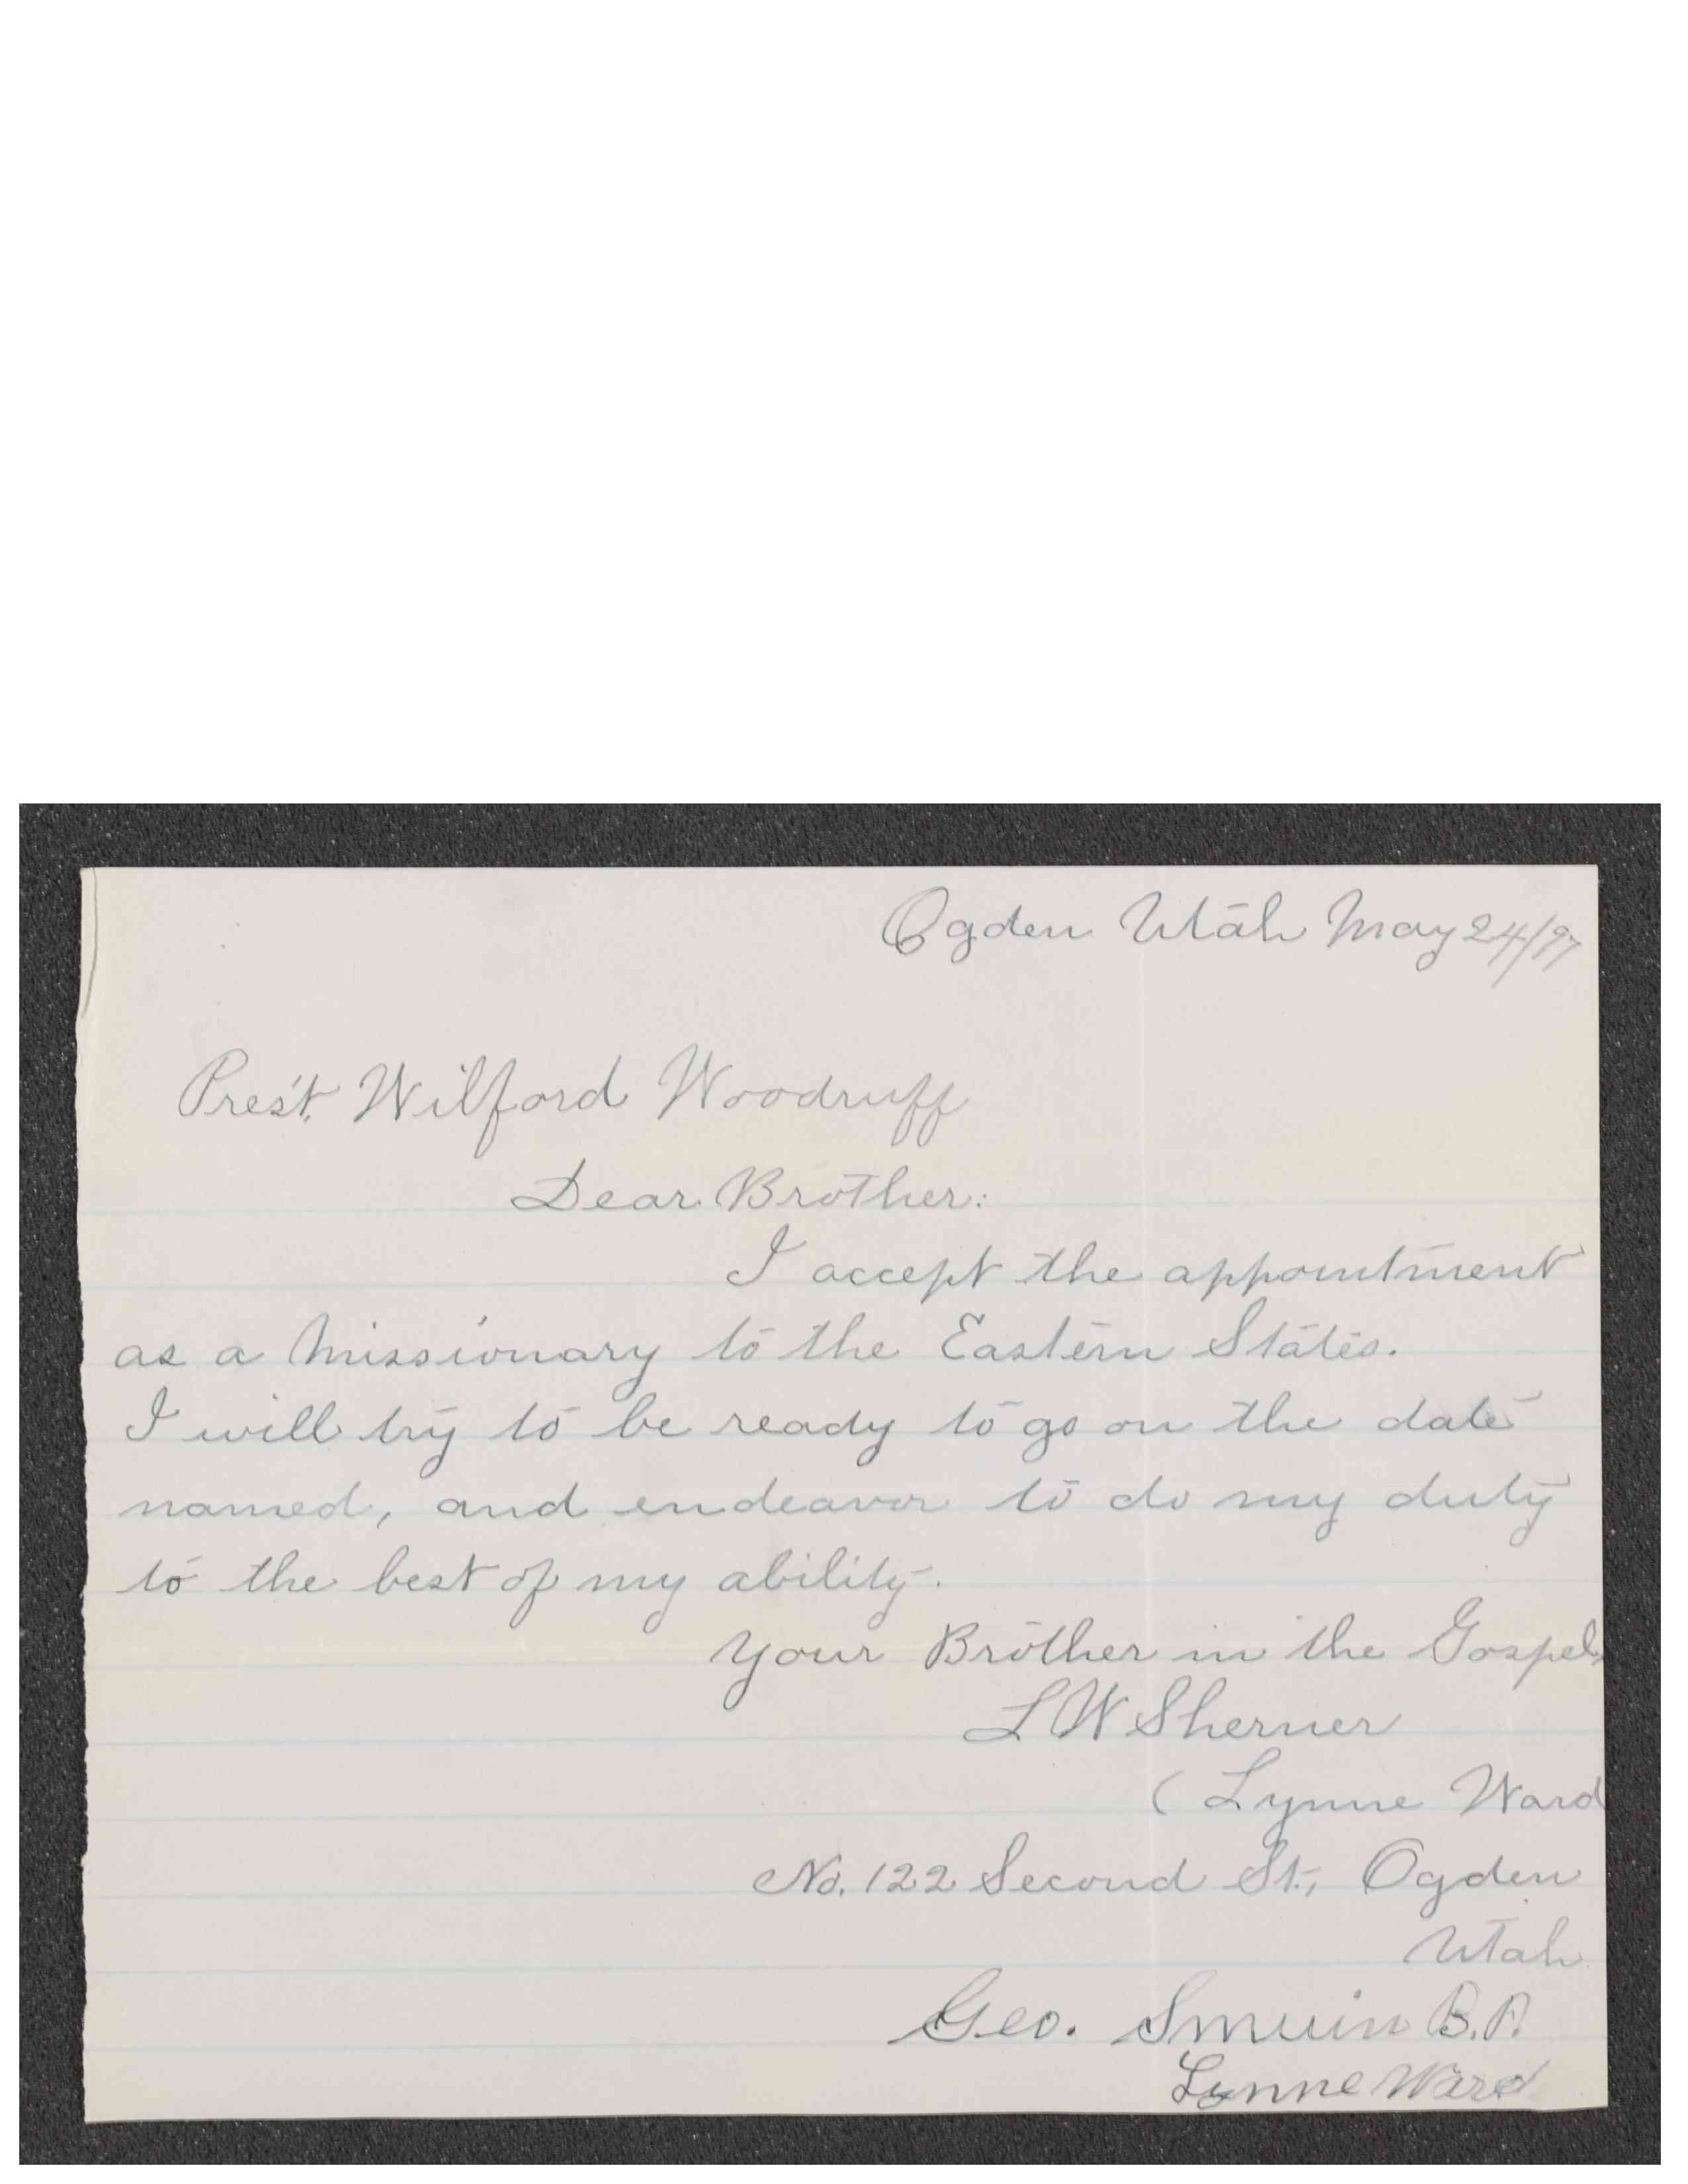 Ogden Utah May 24/97
Pres't. Wilford Woodruff
Dear Brother:
I accept the appointment
as a missionary to the Eastern States.
I will try to be ready to go on the date
named, and endeavor to do my duty
to the best of my ability.
Your Brother in the Gospel,
L W Sherner
(Lynne Ward
No. 122 Second St., Ogden
Utah
Geo. Smuin B.P.
Lynne Ward